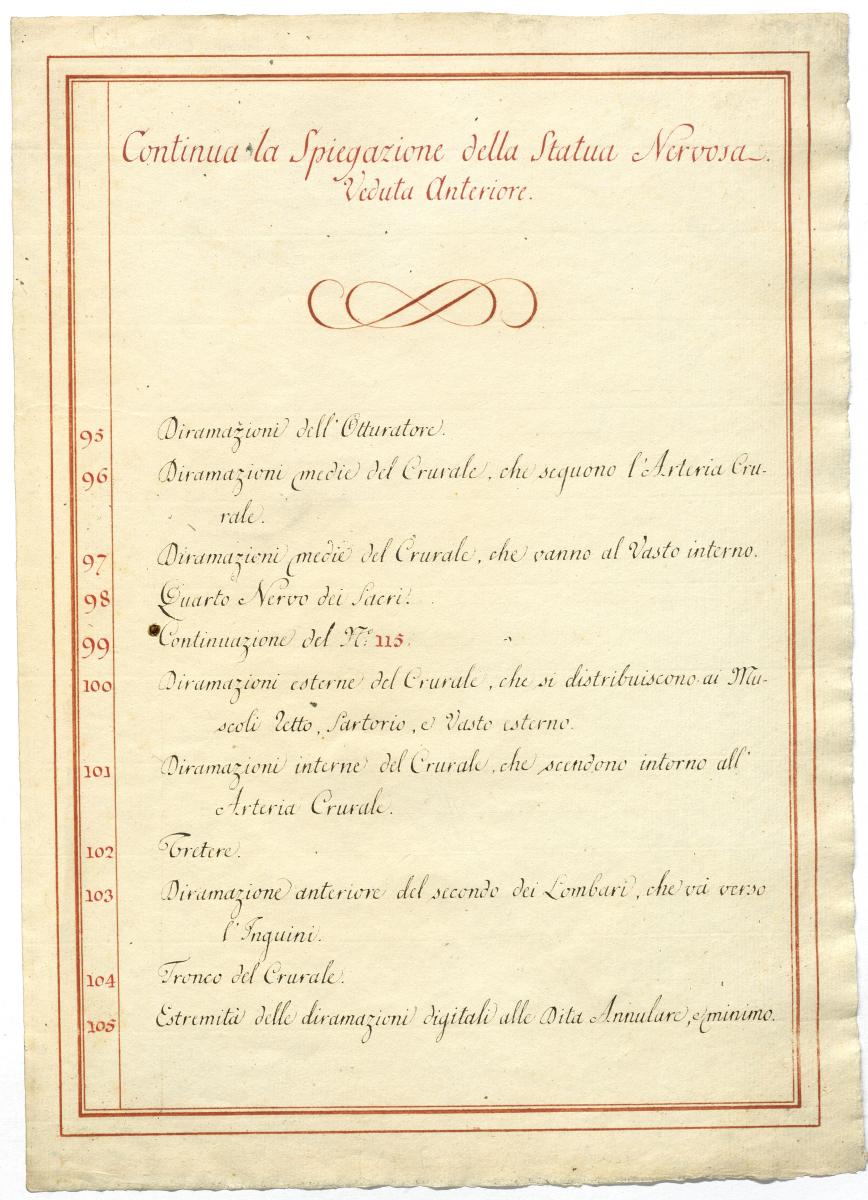 Continua la Spiegazione della Statua Nervosa.
Veduta Anteriore.
95 Diramazioni dell'Otturatore.
96 Diramazioni medie del Crurale, che seguono l'Arteria Cru-
rale.
97 Diramazioni medie del Crurale, che vanno al Vasto interno.
98 Quarto Nervo dei Sacri.
99 Continuazione del N.º 115.
100 Diramazioni esterne del Crurale, che si distribuiscono ai Mu-
scoli Retto, Sartorio, e Vasto esterno.
101 Diramazioni interne del Crurale, che scendono intorno all'
Arteria Crurale.
102 Uretere.
103 Diramazione anteriore del secondo dei Lombari, che và verso
l'Inguini.
104 Tronco del Crurale.
105 Estremità delle diramazioni digitali alle Dita Annulare, e minimo.